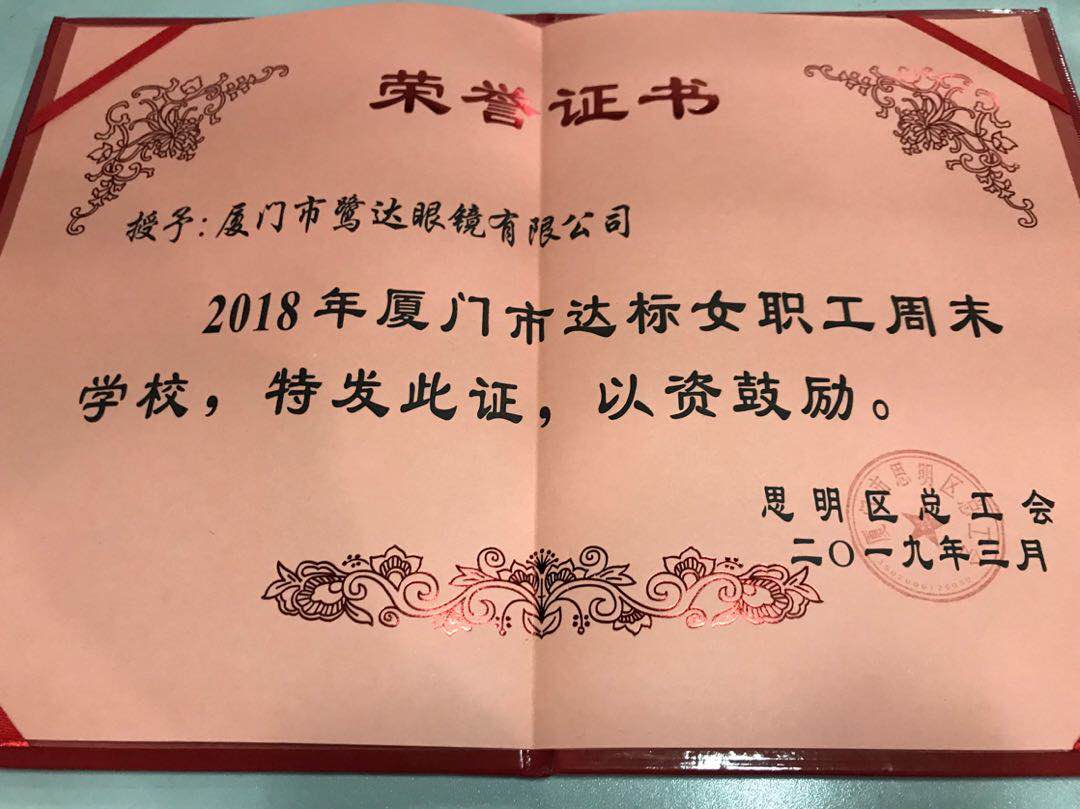 荣誉证书
授予：厦门市鹭达眼镜有限公司
2018年厦门市达标女职工周末
学校，特发此证，以资鼓励。
思明区总工会
二〇一九年三月